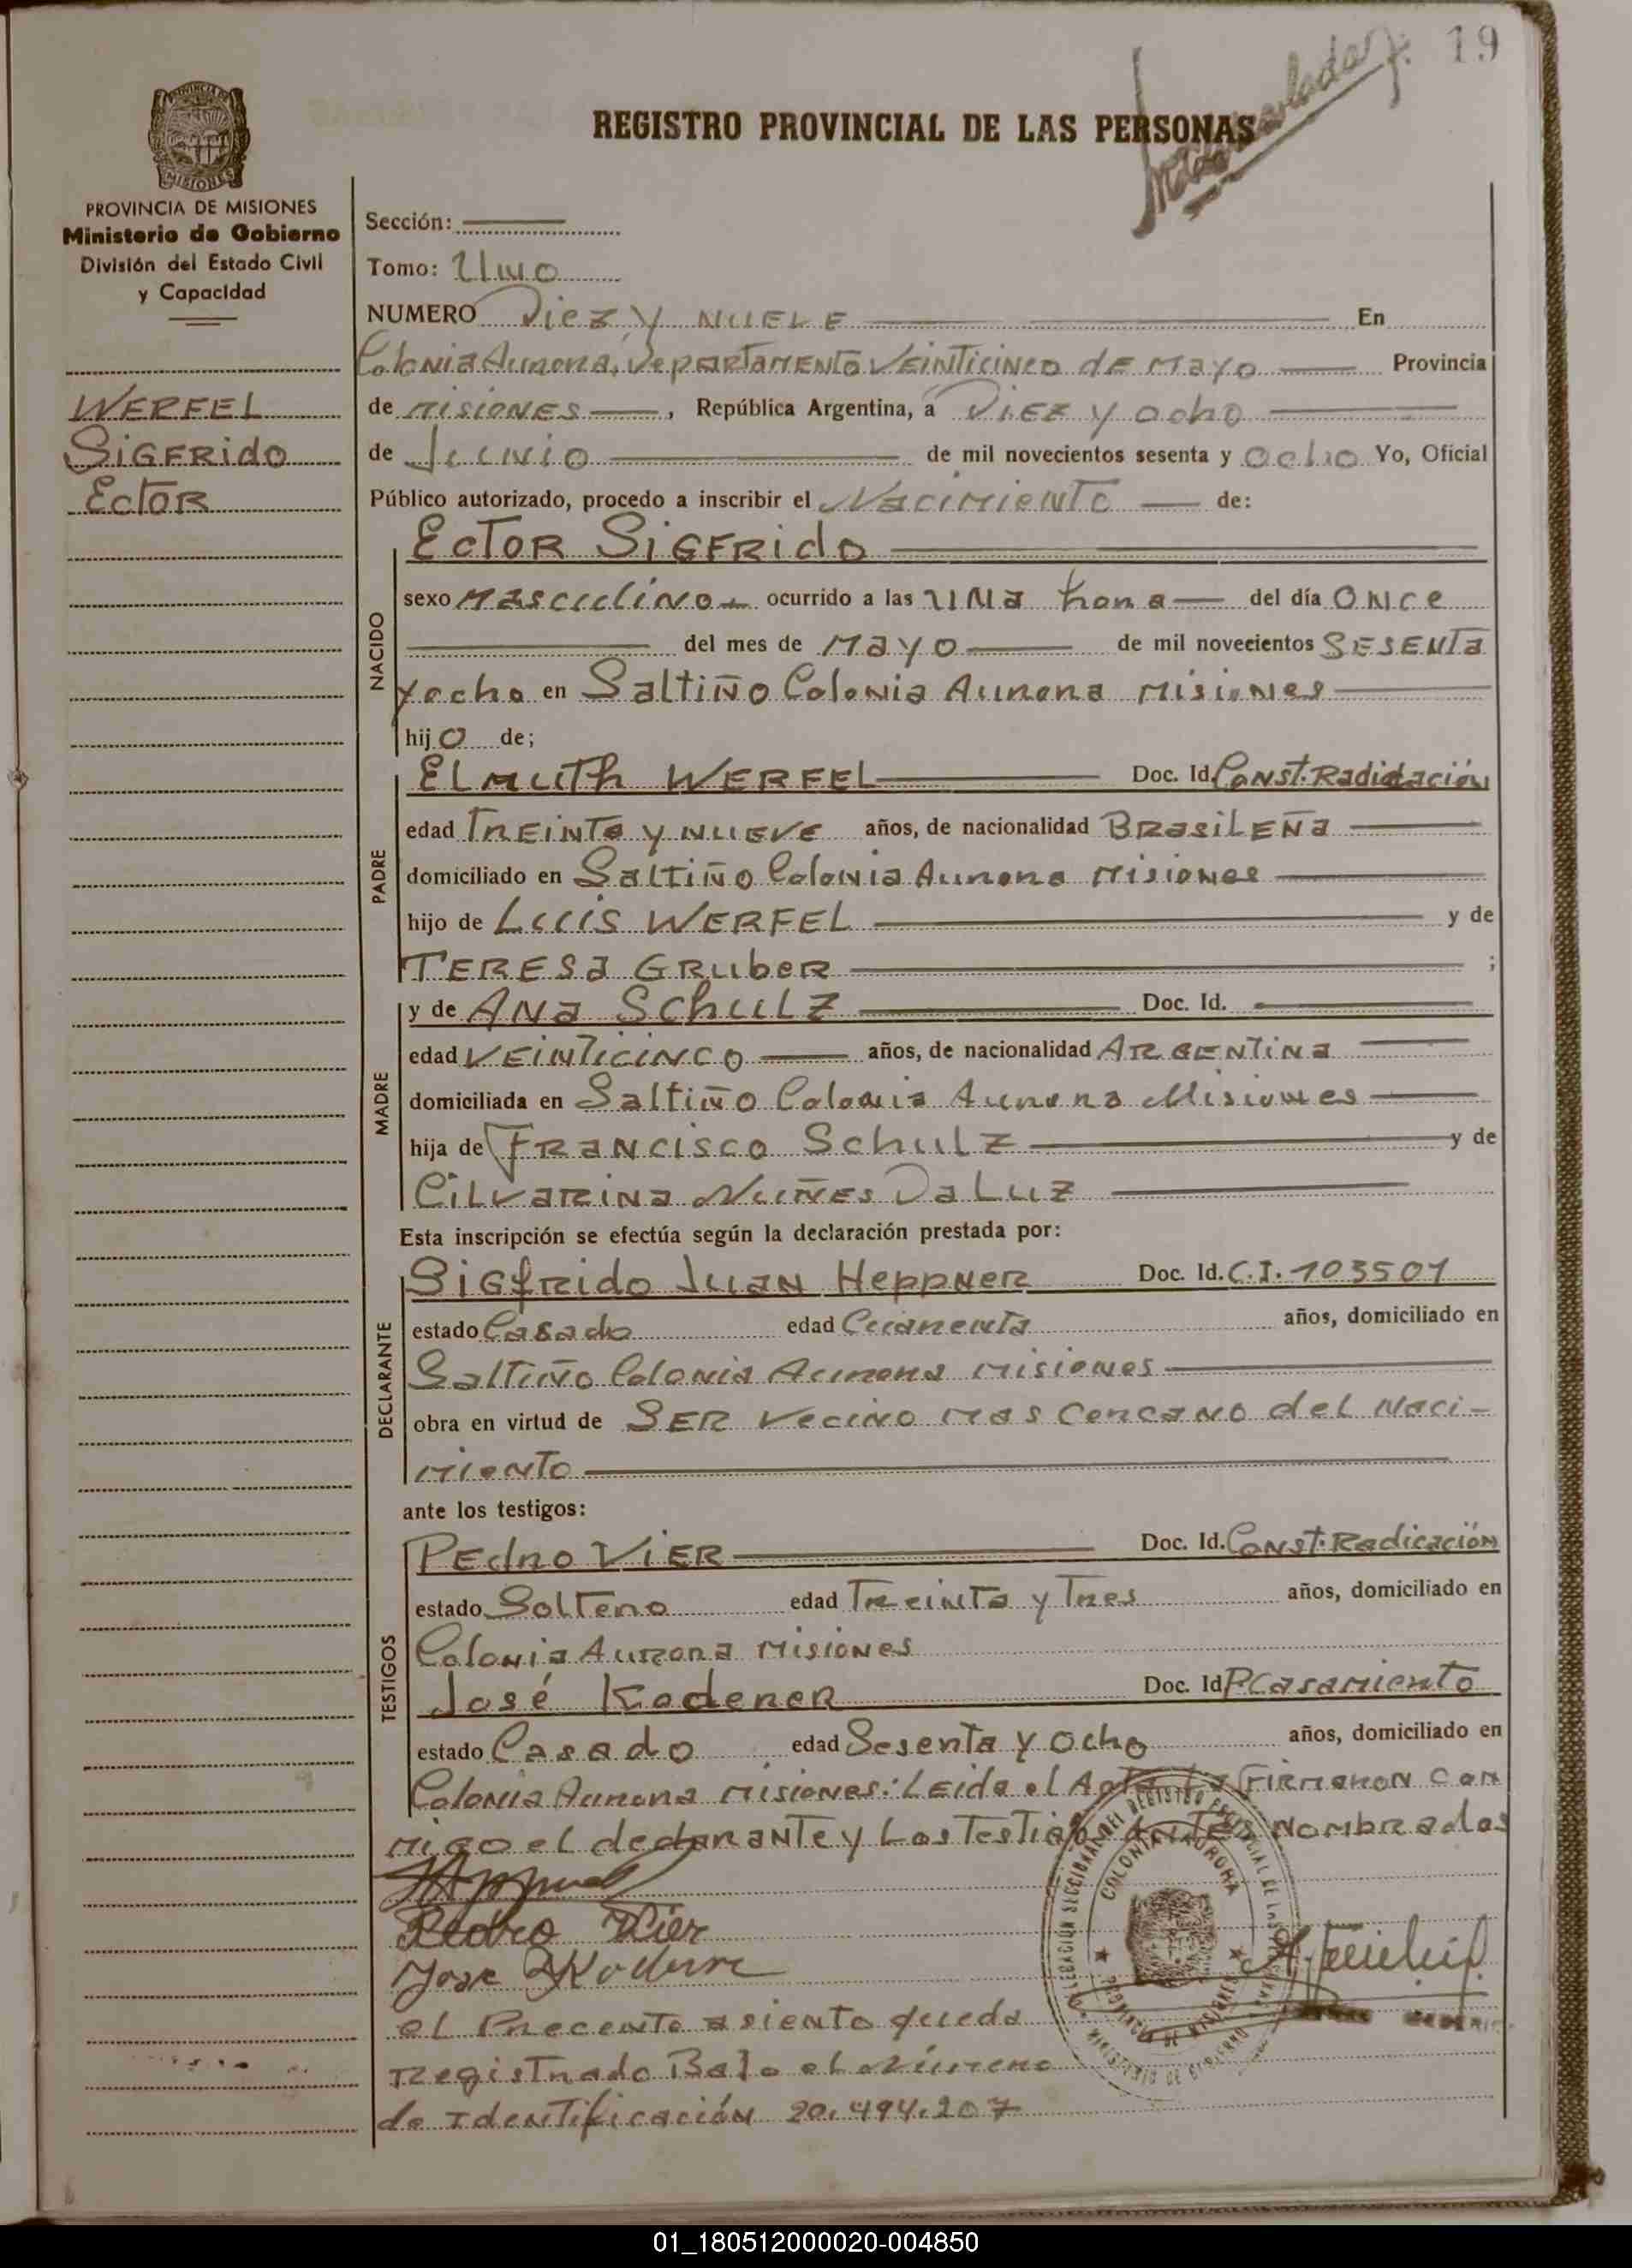 19
REGISTRO PROVINCIAL DE LAS PERSONAS
PROVINCIA DE MISIONES
Ministerio de Gobierno
División del Estado Civil
y Capacidad
WERFEL
SiGFRido
EcToR
Sección:
Tomo: Uno
NUMERO Diez y NUEVE En
Colonia Aurora, Departamento Veinticinco de Mayo Provincia
de Misiones, República Argentina, a Diez y ocho
de Junio de mil novecientos sesenta y ocho Yo, Oficial
Público autorizado, procedo a inscribir el Nacimiento de:
NACIDO
EcToR SiGFRido
sexo Masculino ocurrido a las una hora del día once
del mes de Mayo de mil novecientos SESENTa
y ocho en Saltiño Colonia Aurora Misiones
hijo de;
PADRE
Elmuth WERFEL Doc. Id. Const. Radidación
edad Treinta y nueve años, de nacionalidad BRasiLEÑa
domiciliado en Saltiño Colonia Aurora Misiones
hijo de Luis WERFEL y de
TERESa GRubeR ;
MADRE
y de Ana Schulz Doc. Id.
edad VEinticinco años, de nacionalidad ARGENTina
domiciliada en Saltiño Colonia Aurora Misiones
hija de FRancisco Schulz y de
CiLvaRina Nuñes Da Luz
Esta inscripción se efectúa según la declaración prestada por:
DECLARANTE
Sigfrido Juan Heppner Doc. Id. C.I. 103501
estado Casado edad Cuarenta años, domiciliado en
Saltiño Colonia Aurora Misiones
obra en virtud de SER Vecino mas cercano del Naci-
miento
ante los testigos:
TESTIGOS
Pedro ViER Doc. Id. Const. Radicación
estado Soltero edad Treinta y Tres años, domiciliado en
Colonia Aurora Misiones
José Koderer Doc. Id P Casamiento
estado Casado edad Sesenta y Ocho años, domiciliado en
Colonia Aurora Misiones: Leida el Acta La Firmaron con
migo el declarante y Los Testigos antes Nombrados
Pedro Vier
el Precente asiento queda
Registrado Bajo el Número
de Identificación 20.494.207
DELEGACIÓN SECCIONAL DEL REGISTRO PROVINCIAL DE LAS PERSONAS
COLONIA AURORA
PROVINCIA DE MISIONES
MINISTERIO DE GOBIERNO
01_180512000020-004850